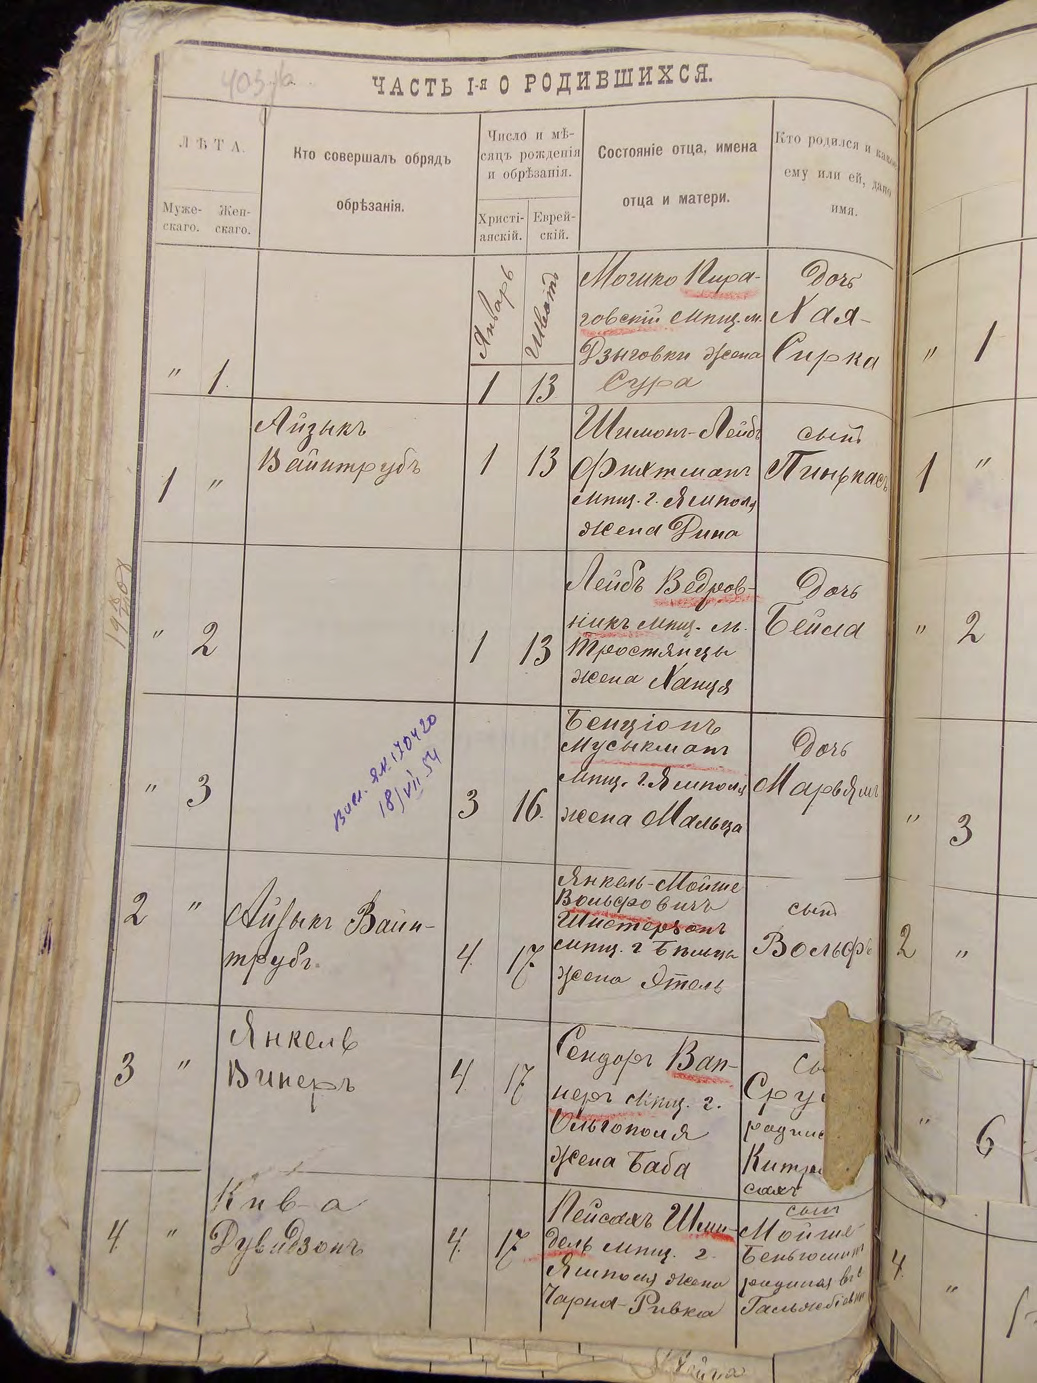 ЧАСТЬ I-я О РОДИВШИХСЯ.
ЛѢТА.
Муже-
скаго.
Жен-
скаго.
Кто совершалъ обрядъ
обрѣзанія.
Число и мѣ-
сяцъ рожденія
и обрѣзанія.
Христі-
анскій.
Еврей-
скій.
Состояніе отца, имена
отца и матери.
Кто родился и какое
ему или ей, дано
имя.
Январь
Шватъ
" 1.
1 13
Мошко Пира-
говскій мпщ. м.
Дзыговки жена
Сура
Дочь
Хая-
Сирка
" 1
1 "
Айзыкъ
Вайнтрубъ
1 13
Шимонъ-Лейбъ
Фихтманъ
мпщ. г. Ямполя
жена Дина
сынъ
Пинькасъ
1 "
" 2
1 13
Лейбъ Ведров-
никъ мпщ. м.
Тростянцы
жена Ханця
Дочь
Бейла
" 2
" 3
18/VII 54
3 16.
Бенціонъ
Мусыкманъ
мпщ. г. Ямполя
жена Мальца
Дочь
Марьямъ
" 3
2 "
Айзыкъ Вайн-
трубъ.
4. 17
Янкель-Мойше
Вольфовичъ
мпщ. г.
жена Этель
сынъ
Вольфъ
2 "
3 "
Янкель
Винеръ
4 17
Сендоръ Вап-
неръ мпщ. г.
Ольгополя
жена Баба
Сру
" 6
4. "
Кива
Дувидзонъ
4. 17
Пейсахъ Шин-
дель мпщ. г.
Ямполя жена
Чарна-Ривка
сынъ
Мойше
Беньюминъ
4. "